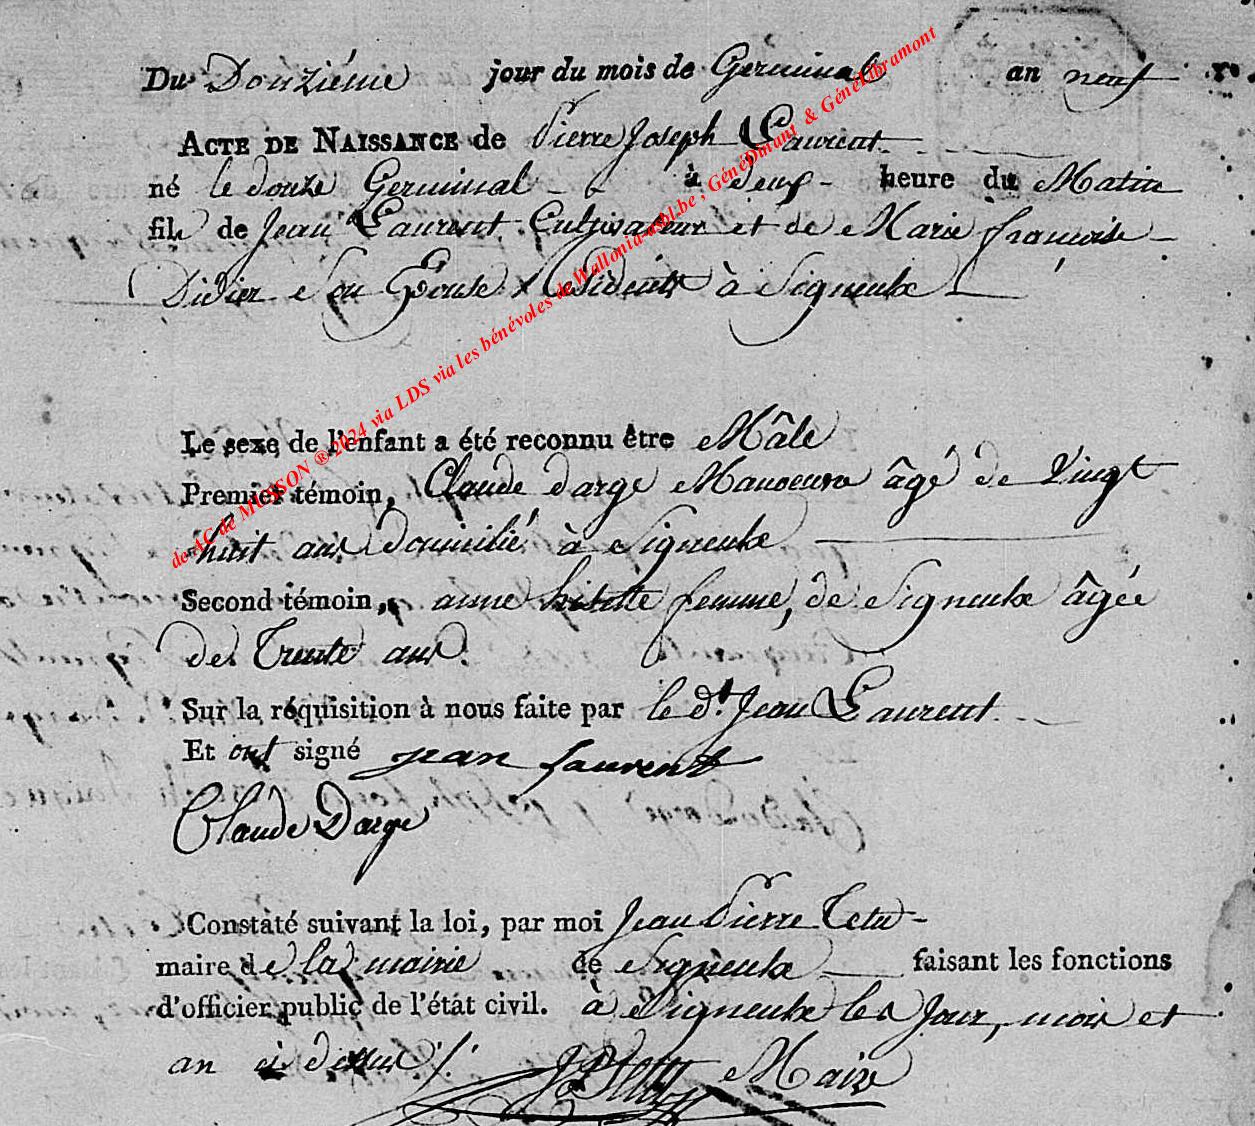 Du Douziéme jour du mois de Germinal an neuf
ACTE DE NAISSANCE de Pierre Joseph Laurent
né le douze Germinal à deux heure du Matin
fils de Jean Laurent Cultivateur et de Marie françoise
Didier son Epouse Résidents à Signeulx
Le sexe de l'enfant a été reconnu être Mâle
Premier témoin, Claude darge Manoeuvre âgé de Vingt
huit ans domicilié à Signeulx
Second témoin, anne femme, de Signeulx âgée
de Trente ans.
Sur la réquisition à nous faite par le dt. Jean Laurent
Et ont signé jean laurent
Claude Darge
Constaté suivant la loi, par moi Jean Pierre Tetu
maire de la mairie de Signeulx faisant les fonctions
d'officier public de l'état civil. à Signeulx les Jour, mois et
an ci dessus
Maire
de AC de MUSSON ® 2024 via LDS via les bénévoles de Wallonia-asbl.be , GénéDinant & GénéLibramont